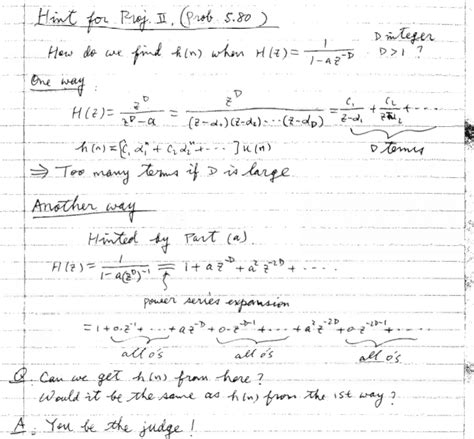 Hint for Proj. II, (Prob 5.80)
How do we find h(n) when H(z) = 1/(1-az^-D) D integer D>1 ?
One way
H(z) = z^D/(z^D-a) = z^D/((z-α₁)(z-α₂)···(z-α_D)) = C₁/(z-α₁) + C₂/(z-α₂) + ···
h(n) = [C₁α₁ⁿ + C₂α₂ⁿ + ··· ] u(n) D terms
⇒ Too many terms if D is large
Another way
Hinted by Part (a).
H(z) = 1/(1-a(z^D)^-1) = 1 + az^-D + a²z^-2D + ····
power series expansion
= 1 + 0·z^-1 + ··· + az^-D + 0·z^-D-1 + ··· + a²z^-2D + 0·z^-2D-1 + ····
all 0's all 0's all 0's
Q. Can we get h(n) from here?
Would it be the same as h(n) from the 1st way?
A. You be the judge!